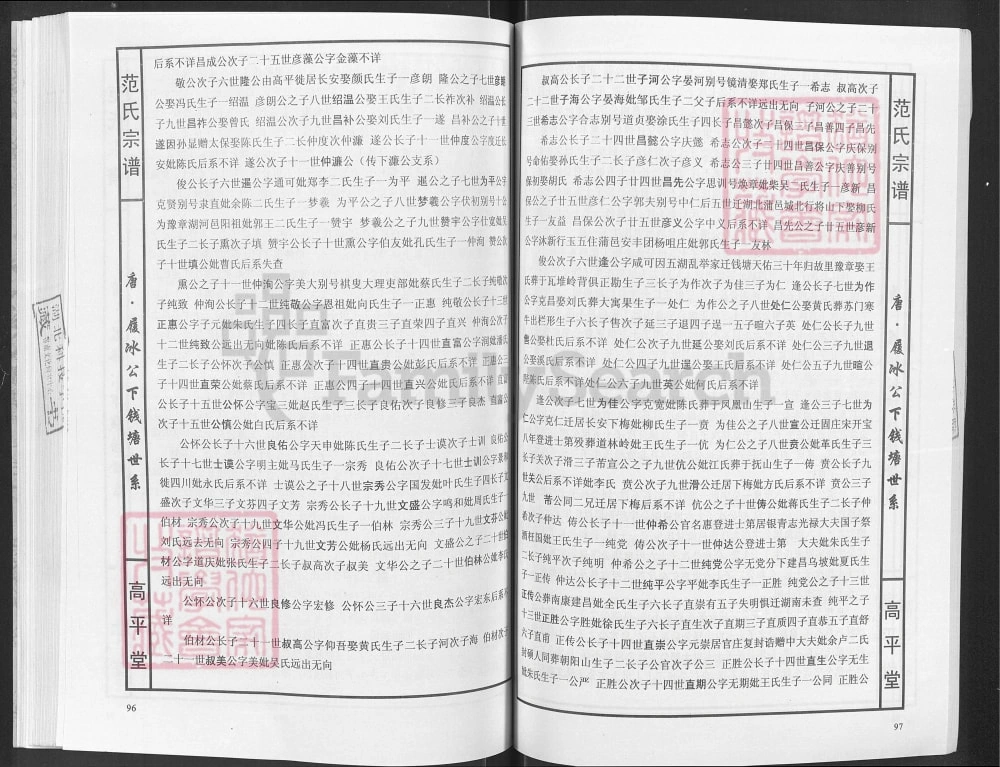 范氏宗谱
唐·履冰公下钱塘世系
高平堂
后系不详昌成公次子二十五世彦藻公字金藻不详
敬公次子六世隆公由高平徙居长安娶颜氏生子一彦朗 隆公之子七世彦朗
公娶冯氏生子一绍温 彦朗公之子八世绍温公娶王氏生子二长祚次补 绍温公长
子九世昌祚公娶曾氏 绍温公次子九世昌补公娶刘氏生子一遂 昌补公之子十世
遂因孙显赠太保娶陈氏生子二长仲度次仲濂 遂公长子十一世仲度公字度迁长
安妣陈氏后系不详 遂公次子十一世仲濂公（传下濂公支系）
俊公长子六世暹公字通可妣郑李二氏生子一为平 暹公之子七世为平公字
克贤别号隶直妣余陈二氏生子一梦羲 为平公之子八世梦羲公字伏初别号十公
为豫章湖河邑阳祖妣郭王二氏生子一赞宇 梦羲公之子九世赞宇公字仕宽妣吴
氏生子二长子熏次子填 赞宇公长子十世熏公字伯友妣孔氏生子一仲洵 赞公次
子十世填公妣曹氏后系失查
熏公之子十一世仲洵公字美大别号祺叟大理吏部妣蔡氏生子二长子纯敬次
子纯致 仲洵公长子十二世纯敬公字恩祖妣向氏生子一正惠 纯敬公长子十三世
正惠公字子元妣朱氏生子四长子直富次子直贵三子直荣四子直兴 仲洵公次子
十二世纯致公远出无向妣陈氏后系不详 正惠公长子十四世直富公字润妣潘氏
生子二长子公怀次子公慎 正惠公次子十四世直贵公妣彭氏后系不详 正惠公三
子十四世直荣公妣蔡氏后系不详 正惠公四子十四世直兴公妣氏后系不详 直富
公长子十五世公怀公字鉴三妣赵氏生子三长子良佑次子良修三子良杰 直富公
次子十五世公慎公妣白氏后系不详
公怀公长子十六世良佑公字天申妣陈氏生子二长子士谟次子士训 良佑公
长子十七世士谟公字明主妣马氏生子一宗秀 良佑公次子十七世士训公字景和
徙四川妣永氏后系不详 士谟公之子十八世宗秀公字国发妣叶氏生子四长子文
盛次子文华三子文芬四子文芳 宗秀公长子十九世文盛公字鸣和妣周氏生子一
伯材 宗秀公次子十九世文华公妣冯氏生子一伯林 宗秀公三子十九世文芬公妣
刘氏远去无向 宗秀公四子十九世文芳公妣杨氏远出无向 文盛公之子二十世伯
材公字道庆妣张氏生子二长子叔高次子叔美 文华公之子二十世伯林公妣李氏
远出无向
公怀公次子十六世良修公字宏修 公怀公三子十六世良杰公字宏东后系不
详
伯材公长子二十一世叔高公字仰吾娶黄氏生子二长子河次子海 伯材次子
二十一世叔美公字美妣吴氏远出无向
96
叔高公长子二十二世子河公字晏河别号镜清娶郑氏生子一希志 叔高次子
二十二世子海公字晏海妣邹氏生子二父子后系不详远出无向 子河公之子二十
三世希志公字合志别号道贞娶涂氏生子四长子昌懿次子昌保三子昌善四子昌先
希志公长子二十四世昌懿公字庆懿 希志公次子二十四世昌保公字庆保别
号命佑娶孙氏生子二长子彦仁次子彦义 希志公三子廿四世昌善公字庆善别号
保初娶胡氏 希志公四子廿四世昌先公字思训号焕章妣柴吴二氏生子一彦新 昌
保公之子廿五世彦仁公字郭夫别号中仁后五世迁湖北蒲邑城北行将山下娶柳氏
生子一友益 昌保公次子廿五世彦义公字中义后系不详 昌先公之子廿五世彦新
公字沐新行玉五住蒲邑安丰团杨咀庄妣郭氏生子一友林
俊公次子六世逢公字咸可因五湖乱举家迁钱塘天佑三十年归故里豫章娶王
氏葬于瓦堆岭背俱正勘生子三长子为作次子为佳三子为仁 逢公长子七世为作
公字克昌娶刘氏葬大寓果生子一处仁 为作公之子八世处仁公娶黄氏葬苏门寒
牛出栏形生子六长子售次子延三子退四子暹一五子暄六子英 处仁公长子九世
售公娶杜氏后系不详 处仁公次子九世延公娶刘氏后系不详 处仁公三子九世退
公娶溪氏后系不详 处仁公四子九世暹公娶王氏后系不详 处仁公五子九世暄公
娶陈氏后系不详处仁公六子九世英公妣何氏后系不详
逢公次子七世为佳公字克宽妣陈氏葬于凤凰山生子一宣 逢公三子七世为
仁公字克仁迁居长安下梅妣柳氏生子一贲 为佳公之子八世宣公迁固庄宋开宝
八年登进士第殁葬道林岭妣王氏生子一伉 为仁公之子八世贲公妣革氏生子三
长子夫次子滑三子莕宣公之子九世伉公妣江氏葬于抚山生子一俦 贲公长子九
世夫公后系不详妣李氏 贲公次子九世滑公迁居下梅妣方氏后系不详 贲公三子
九世 莕公同二兄迁居下梅后系不详 伉公之子十世俦公妣蒋氏生子二长子仲
希次子仲达 俦公长子十一世仲希公官名惠登进士第居银青志光禄大夫国子祭
酒柱国妣王氏生子一纯党 俦公次子十一世仲达公登进士第 大夫妣朱氏生子
二长子纯平次子纯明 仲希公之子十二世纯党公字无党分下建昌乌坡妣夏氏生
子一正传 仲达公长子十二世纯平公字平妣李氏生子一正胜 纯党公之子十三世
正传公葬南康建昌妣全氏生子六长子直崇有五子失明惧迁湖南未查 纯平之子
十三世正胜公字胜妣徐氏生子六长子直生次子直期三子直质四子直恭五子直舒
六子直甫 正传公长子十四世直崇公字元崇居官庄复封诰赠中大夫妣余卢二氏
封硕人同葬朝阳山生子二长子公官次子公三 正胜公长子十四世直生公字无生
妣朱氏生子一公严 正胜公次子十四世直期公字无期妣王氏生子一公同 正胜公
范氏宗谱
唐·履冰公下钱塘世系
高平堂
97
FamilySearch